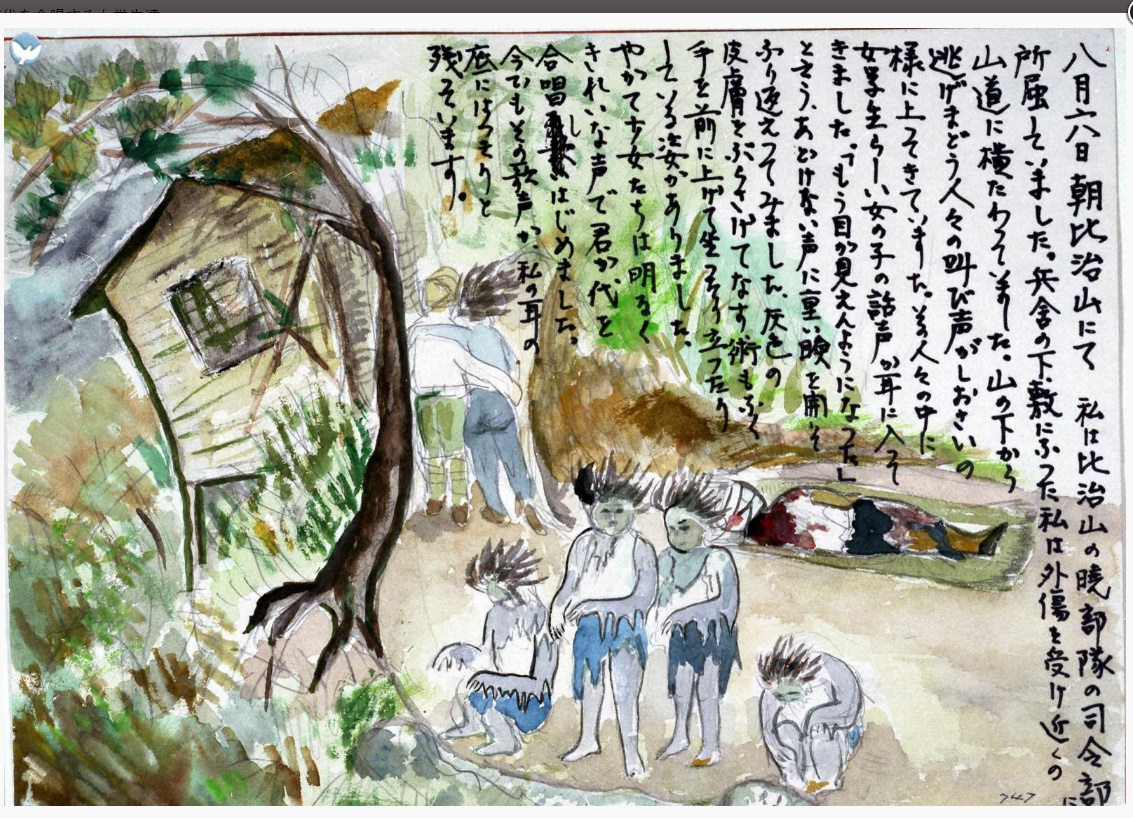 八月六日朝比治山にて 私は比治山の暁部隊の司令部に
所属していました。兵舎の下敷になった私は外傷を受け近くの
山道に横たわっていました。山の下から
逃げまどう人々の叫び声がしおさいの
様に上ってきていました。その人々の中に
女学生らしい女の子の話声が耳に入って
きました。「もう目が見えんようになった」
とゆう、あどけない声に重い瞼を開いて
ふり返えってみました。灰色の
皮膚をぶらさげてなす術もなく
手を前に上げて坐ったり立ったり
している姿がありました。
やがて少女たちは明るく
きれいな声で君が代を
合唱しはじめました。
今でもその歌声が、私の耳の
底にはっきりと
残っています。